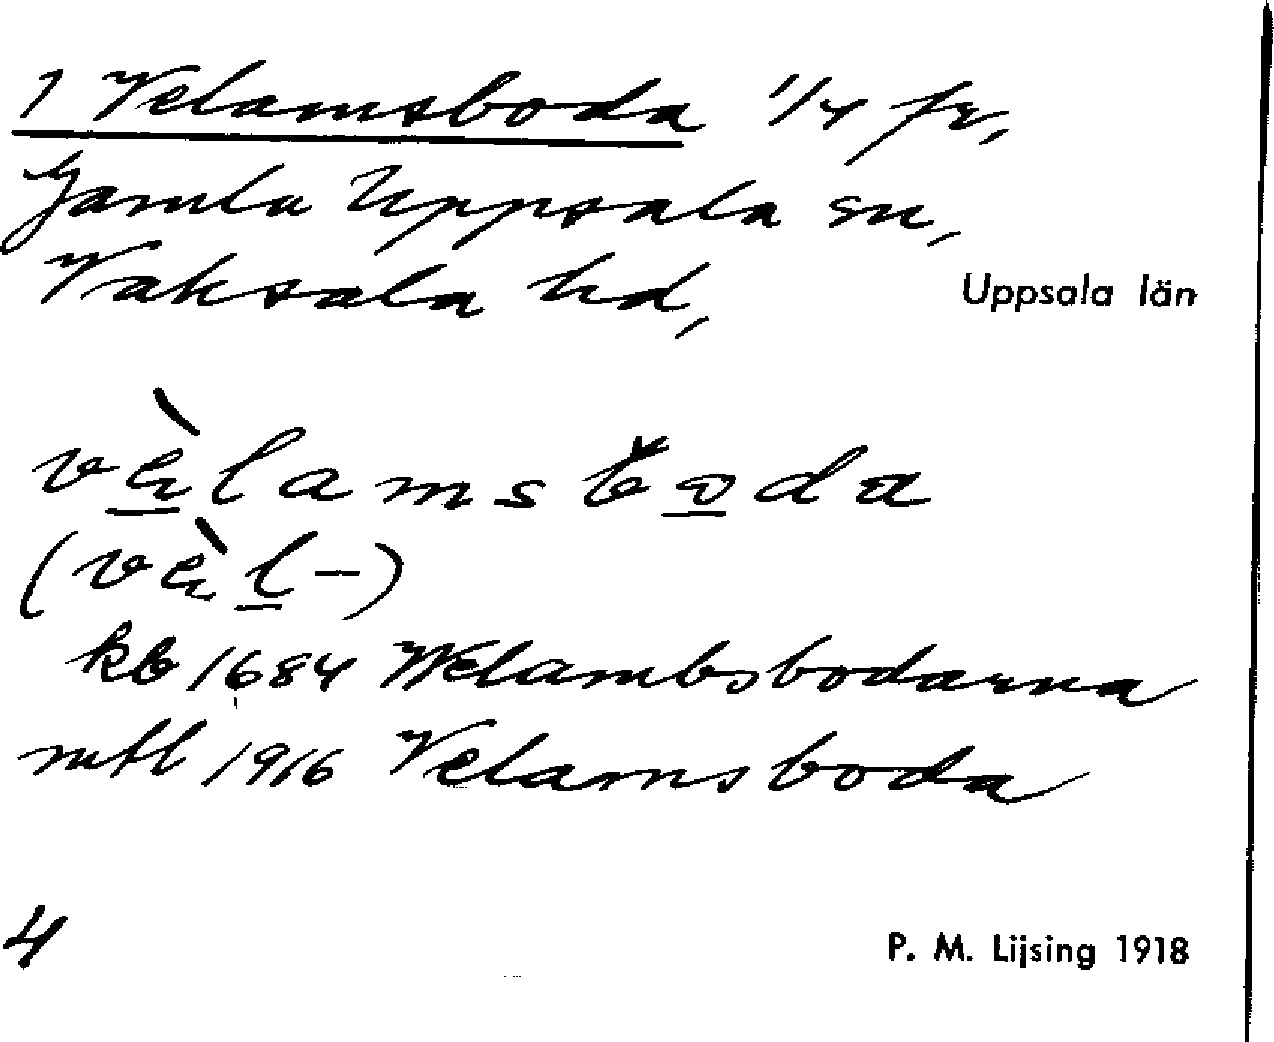 1 Velamsboda 1/4 fr,
Gamla Uppsala sn,
Vaksala hd,
Uppsala län
vèlamsboda
(vèl-)
kb 1684 Welambsbodarna
mtl 1916 Velamsboda
4
P. M. Lijsing 1918